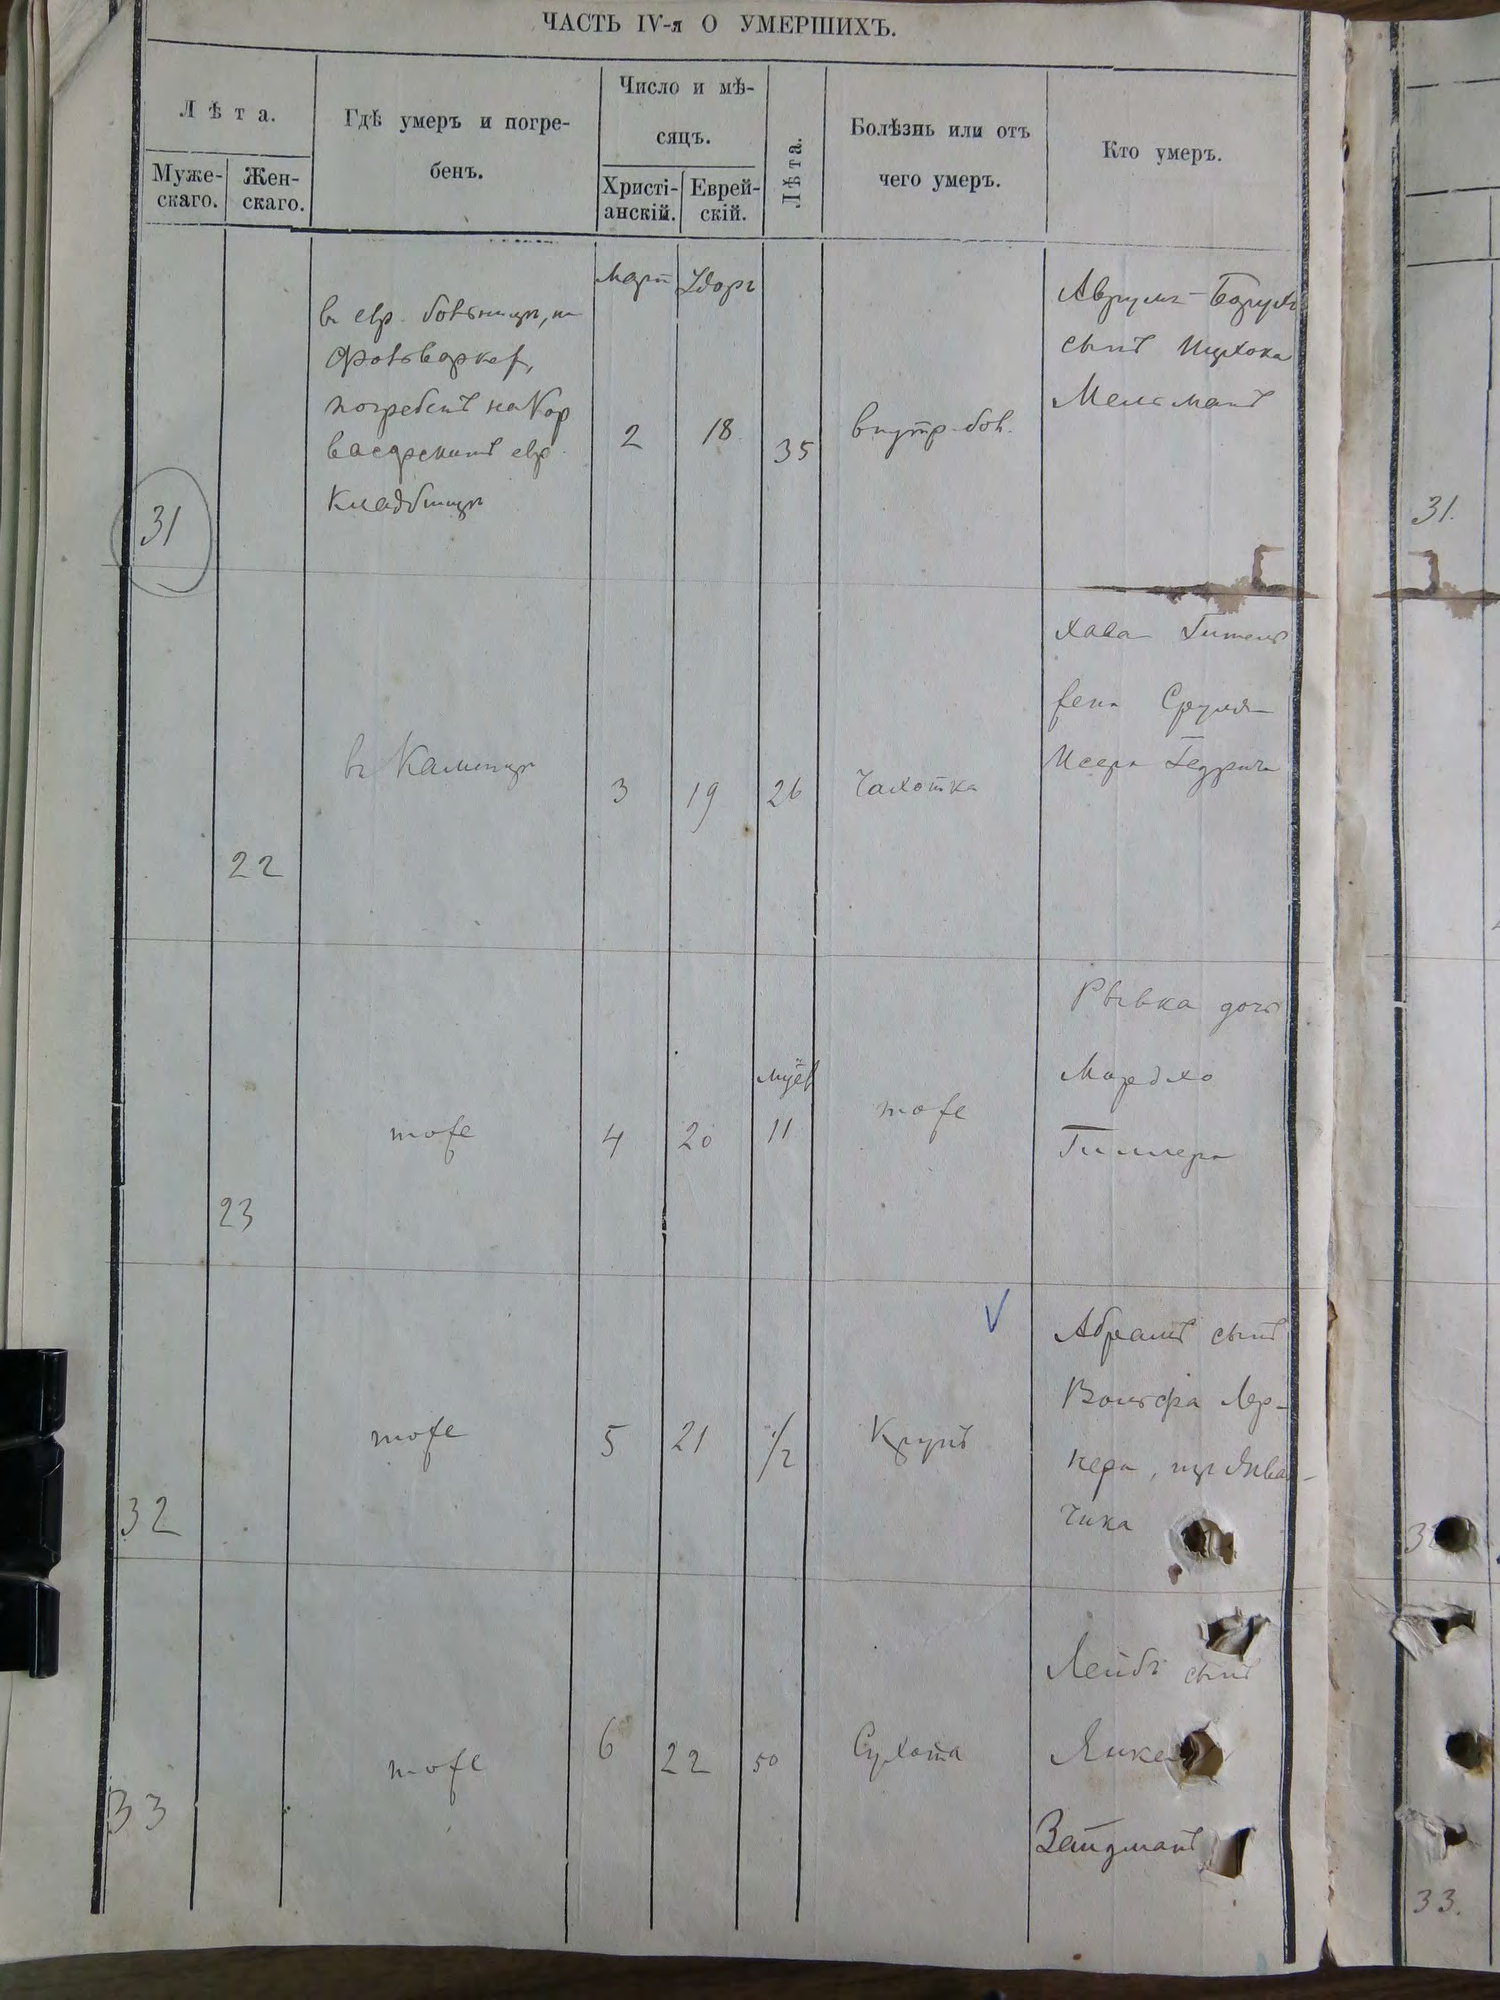 ЧАСТЬ IV-я О УМЕРШИХЪ.
Лѣта.
Муже-
скаго.
Жен-
скаго.
Гдѣ умеръ и погре-
бенъ.
Число и мѣ-
сяцъ.
Христі-
анскій.
Еврей-
скій.
Лѣта.
Болѣзнь или отъ
чего умеръ.
Кто умеръ.
31
в евр. больницѣ, на
Фольваркѣ,
погребенъ на Кор
васарскомъ евр.
кладбищѣ
Март
2
Адоръ
18
35
внутр. бол.
Аврумъ-Борухъ
сынъ Ицхока
Мельманъ
31.
22
в Каменцѣ
3
19
26
Чахотка
Хава Гитель
жена Сруля
Исера
23
тоже
4
20
11
тоже
Рывка дочь
Мордхо
Гиллера
32
тоже
5
21
1/2
Крупъ
Абрамъ сынъ
Вольфа Лер-
нера, из
чика
33
тоже
6
22
50
Сухота
Лейбъ сынъ
Янке
Вайдманъ
33.